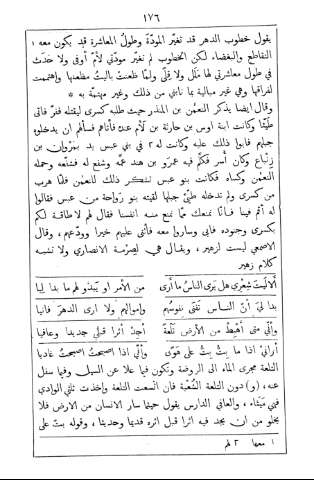 ١٧٦
يقول خطوب الدهر قد تغيّر المودّة وطول المعاشرة قد يكون معه ١
التقاطع والبغضاء لكن الخطوب لم تغيّر مودّتي لأمّ أوفى ولا حدث
في طول معاشرتي لها ملل ولا قلى وإمّا ظعنت باليت مظعنها واهتممت
لفراقها وهي غير مبالية بما نابني من ذلك وغير مهتمّة به *
وقال ايضا يذكر النعمن بن المنذر حيث طلبه كسرى ليقتله ففرّ فاتى
طيّئا وكانت ابنة اوس بن حارثة بن لأم عنده فأتاهم فسألهم ان يدخلوه
جبلهم فابوا ذلك عليه وكانت له ٢ في بني عبس يد بمروان بن
زنباع وكان أسر فكلّم فيه عمرو بن هند عمّه وشفع له فشفّعه وحمله
النعمن وكساه فكانت بنو عبس تشكر ذلك للنعمن فلمّا هرب
من كسرى ولم تدخله طيّئ جبلها لقيته بنو رواحة من عبس فقالوا
له أقم فينا فانّا نمنعك ممّا نمنع منه انفسنا فقال لهم لا طاقة لكم
بكسرى وجنوده فابى وساروا معه فأثنى عليهم خيرا وودّعهم، وقال
الاصمعي ليست لزهير، ويقال هي لصرمة الانصاري ولا تشبه
كلام زهير
ألا ليت شعري هل يرى الناس ما أرى من الأمر او يبدو لهم ما بدا ليا
بدا لي أنّ الناس تفنى نفوسهم واموالهم ولا ارى الدهر فانيا
وإنّي متى أهبط من الأرض تلعة أجد أثرا قبلي جديدا وعافيا
أراني اذا ما بتّ بتّ على هوى وإنّي اذا اصبحت اصبحت غاديا
التلعة مجرى الماء الى الروضة وتكون فيما علا عن السيل وفيما سفل
عنه، (و) دون التلعة الشعبة فان اتّسعت التلعة وأخذت ثلثي الوادي
فهي ميثاء، والعافي الدارس يقول حيثما سار الانسان من الارض فلا
يخلو من ان يجد فيه اثرا قبل اثره قديما وحديثا، وقوله بتّ على
١ معها ٢ لهم